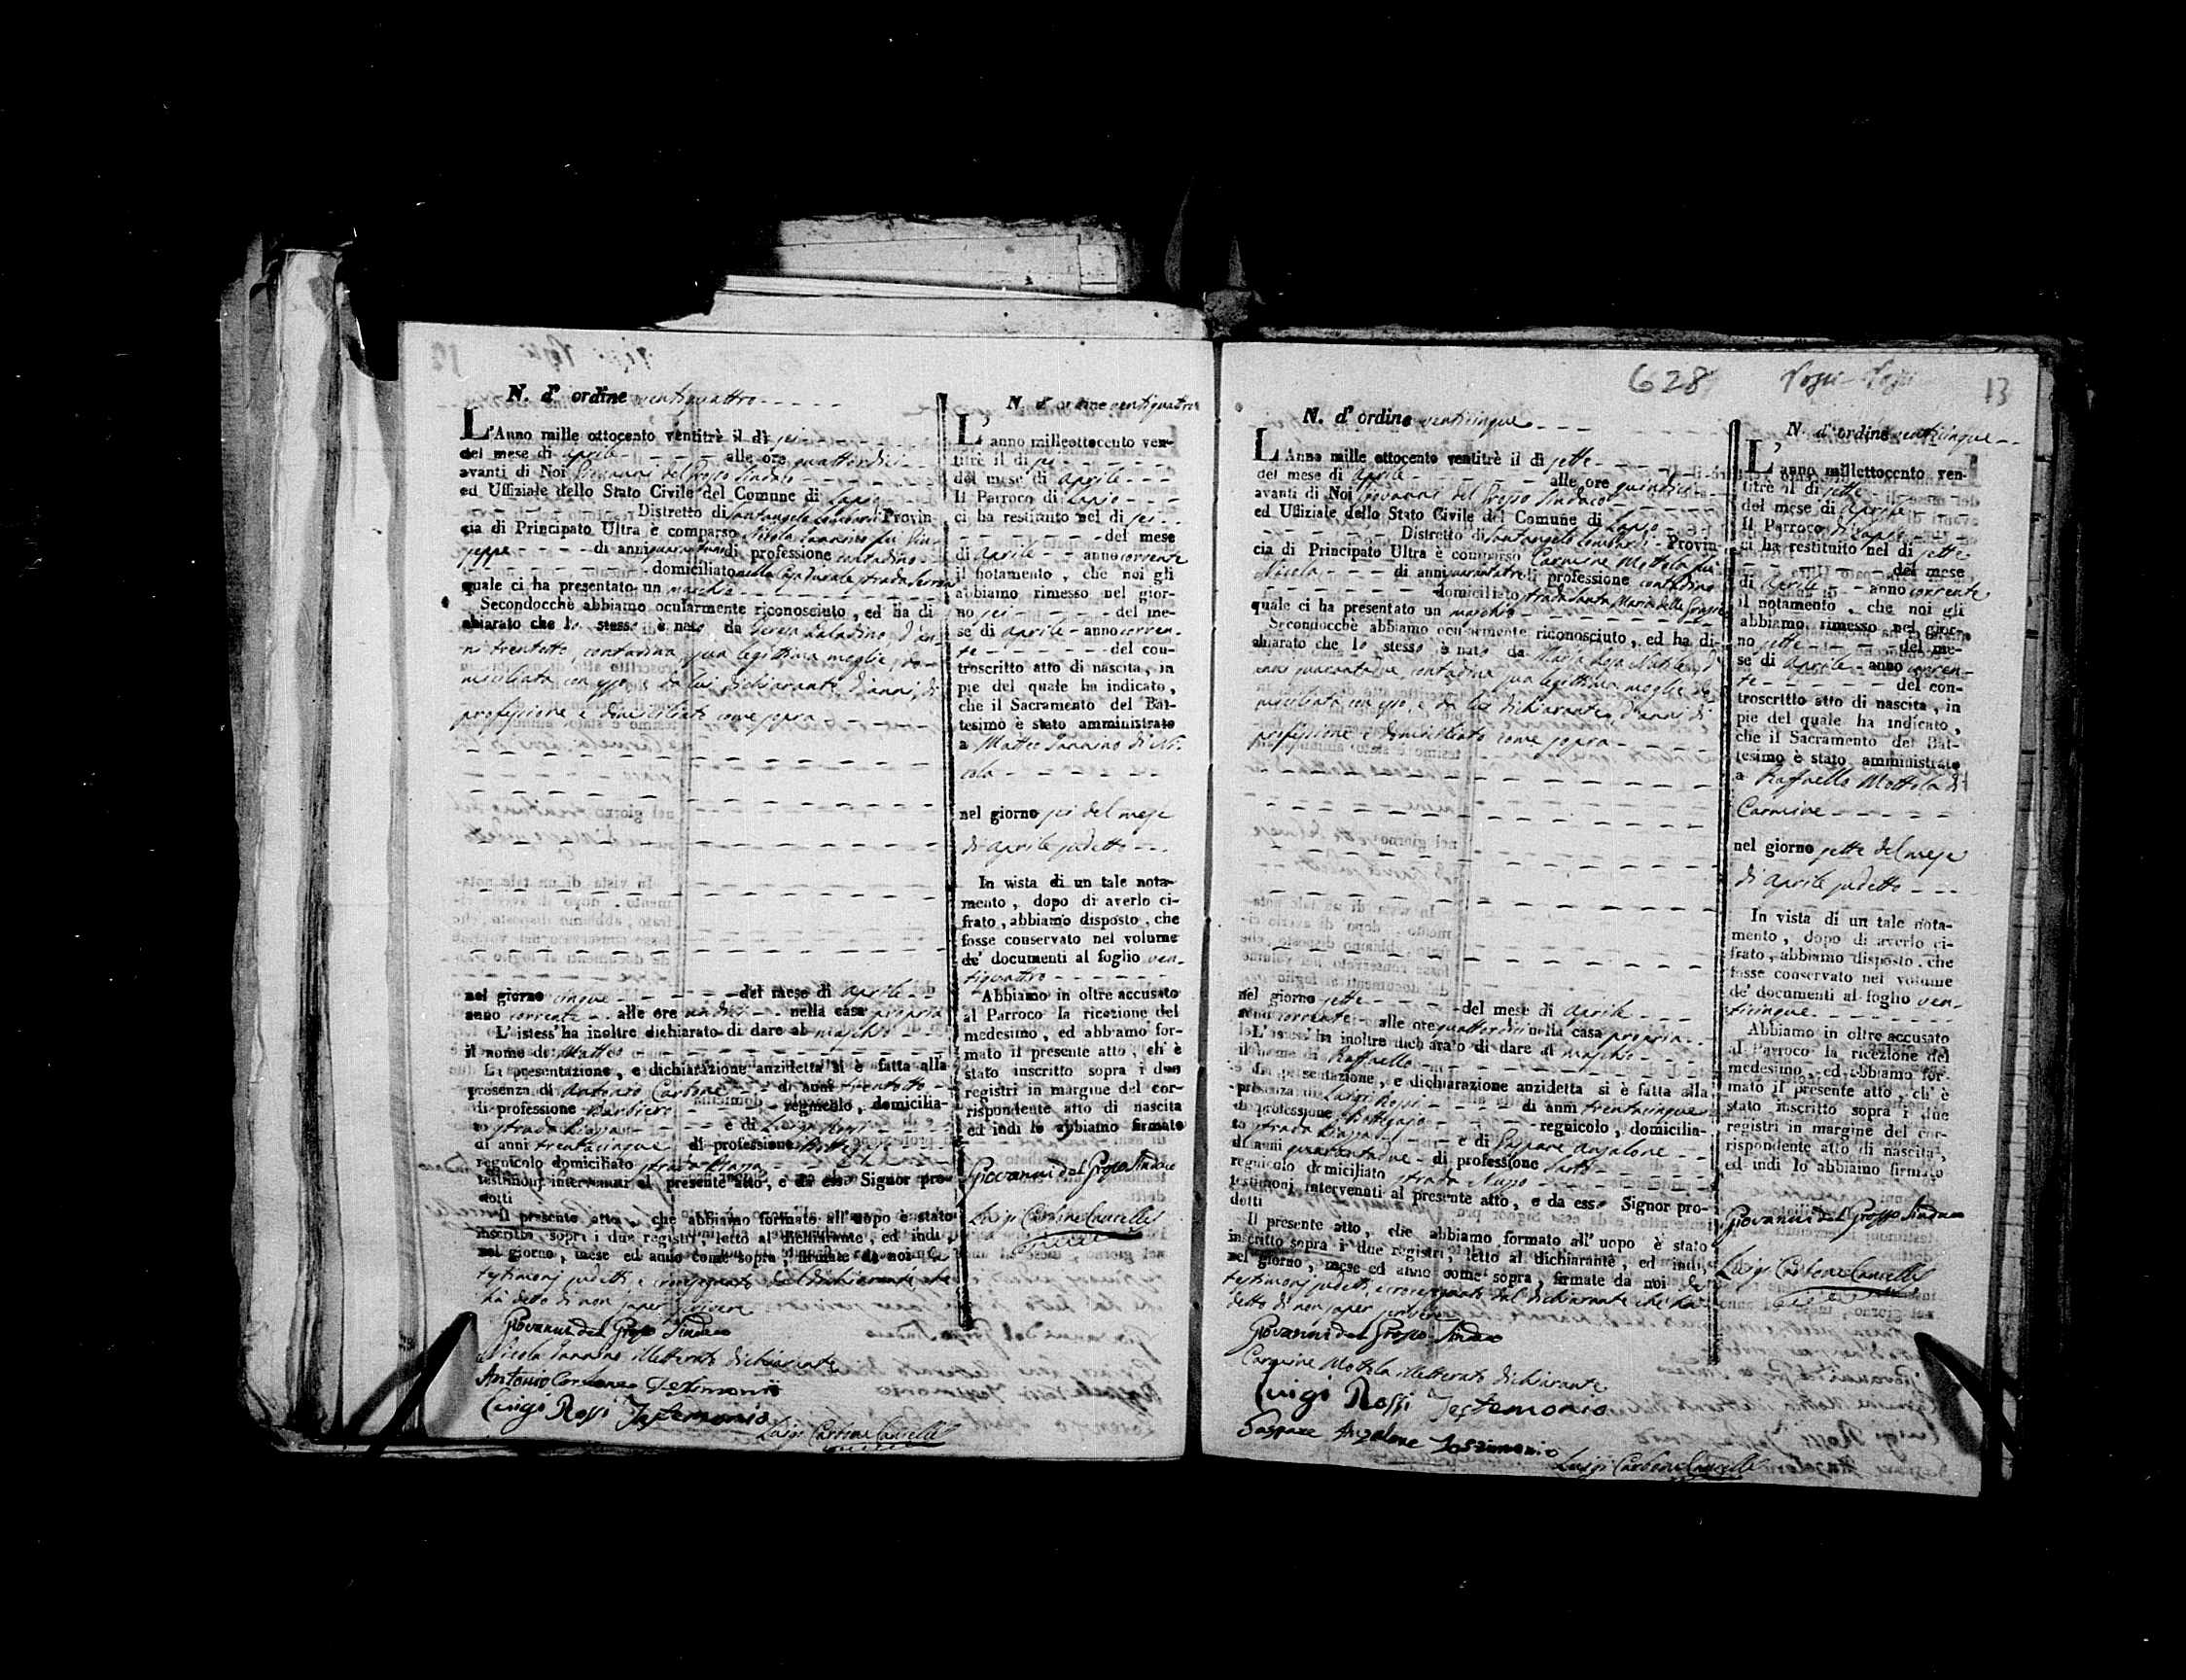 N. d' ordine ventiquattro
L'Anno mille ottocento ventitrè il dì sei
del mese di aprile alle ore quattordici
avanti di Noi Giovanni del Grosso Sindaco
ed Uffiziale dello Stato Civile del Comune di Lapio
Distretto di Santangelo Lombardi Provin-
cia di Principato Ultra è comparso Nicola Iannino fu Giu-
seppe di anni di professione contadino
domiciliato nella Casa Strada
quale ci ha presentato un maschio
Secondocchè abbiamo ocularmente riconosciuto, ed ha di
chiarato che lo stesso è nato da Teresa Paladino, d'an-
ni trentotto, contadina sua legittima moglie do-
miciliata con esso e da lui dichiarante d'anni, di
professione e domiciliato come sopra
nel giorno cinque del mese di aprile
anno corrente alle ore undici nella casa propria
L'istess' ha inoltre dichiarato di dare al maschio
il nome di Matteo
La presentazione, e dichiarazione anzidetta si è fatta alla
presenza di Antonio Carbone di anni trentotto
di professione Barbiero regnicolo, domicilia-
to strada Piazza e di Luigi Rossi
di anni trentacinque di professione
regnicolo domiciliato strada Piazza
testimonj intervenuti al presente atto, e da esso Signor pro-
dotti
Il presente atto, che abbiamo formato all'uopo è stato
inscritto sopra i due registri, letto al dichiarante, ed indi,
nel giorno, mese ed anno come sopra, firmate da noi
testimonj sudetti, e crocesegnato dal dichiarante che
ha detto di non saper scrivere
Giovanni del Grosso Sindaco
Nicola Iannino illetterato dichiarante
Antonio Carbone Testimonio
Luigi Rossi Testemonio
Luigi Carbone Cancelle
N. d' ordine ventiquattro
L'anno milleottocento ven-
titrè il di sei
del mese di aprile
Il Parroco di Lapio
ci ha restituito nel di sei
del mese
di aprile anno corrente
il notamento, che noi gli
abbiamo rimesso nel gior-
no sei del me-
se di aprile anno corren-
te del con-
troscritto atto di nascita, in
pie del quale ha indicato,
che il Sacramento del Bat-
tesimo è stato amministrato
a Matteo Iannino di Ni-
cola
nel giorno sei del mese
di aprile sudetto
In vista di un tale nota-
mento, dopo di averlo ci-
frato, abbiamo disposto, che
fosse conservato nel volume
de' documenti al foglio ven-
tiquattro
Abbiamo in oltre accusato
al Parroco la ricezione del
medesimo, ed abbiamo for-
mato il presente atto, ch' è
stato inscritto sopra i due
registri in margine del cor-
rispondente atto di nascita
ed indi lo abbiamo firmato
Giovanni del Grosso Sindaco
Luigi Carbone Cancelle
628
13
N. d' ordine venticinque
L'Anno mille ottocento ventitrè il di sette
del mese di aprile alle ore quindici
avanti di Noi Giovanni del Grosso Sindaco
ed Uffiziale dello Stato Civile del Comune di Lapio
Distretto di Santangelo Lombardi Provin-
cia di Principato Ultra è comparso Carmine Mottola fu
Nicola di anni di professione contadino
domiciliato strada Santa Maria delle Grazie
quale ci ha presentato un maschio
Secondocchè abbiamo ocularmente riconosciuto, ed ha di-
chiarato che lo stesso è nato da Maria Rosa
anni quarantadue, contadina sua legittima moglie do-
miciliata con esso, e da lui dichiarante, d'anni di
professione e domiciliato come sopra
nel giorno sette del mese di aprile
anno corrente alle ore quattordici nella casa propria
L'istess' ha inoltre dichiarato di dare al maschio
il nome di Raffaello
La presentazione, e dichiarazione anzidetta si è fatta alla
presenza di Luigi Rossi di anni trentacinque
di professione Bottegaro regnicolo, domicilia-
to strada Piazza e di Gaspare Anzalone
di anni quarantadue di professione Sarto
regnicolo domiciliato strada
testimoni intervenuti al presente atto, e da esso Signor pro-
dotti
Il presente atto, che abbiamo formato all' uopo è stato
inscritto sopra i due registri, letto al dichiarante, ed indi,
nel giorno, mese ed anno come sopra, firmate da noi
testimonj sudetti, e crocesegnato dal dichiarante che ha
detto di non saper scrivere
Giovanni del Grosso Sindaco
Carmine Mottola illetterato dichiarante
Luigi Rossi Testemonio
Gaspare Anzalone Testimonio
Luigi Carbone Cancelle
N. d' ordine venticinque
L'anno millettocento ven-
titrè il di sette
del mese di aprile
Il Parroco di Lapio
ci ha restituito nel di sette
del mese
di aprile anno corrente
il notamento, che noi gli
abbiamo rimesso nel gior-
no sette del me-
se di aprile anno corren-
te del con-
troscritto atto di nascita, in
pie del quale ha indicato,
che il Sacramento del Bat-
tesimo è stato amministrato
a Raffaello Mottola di
Carmine
nel giorno sette del mese
di aprile sudetto
In vista di un tale nota-
mento, dopo di averlo ci-
frato, abbiamo disposto, che
fosse conservato nel volume
de' documenti al foglio ven-
ticinque
Abbiamo in oltre accusato
al Parroco la ricezione del
medesimo, ed abbiamo for-
mato il presente atto, ch' è
stato inscritto sopra i due
registri in margine del cor-
rispondente atto di nascita,
ed indi lo abbiamo firmato
Giovanni del Grosso Sindaco
Luigi Carbone Cancelle